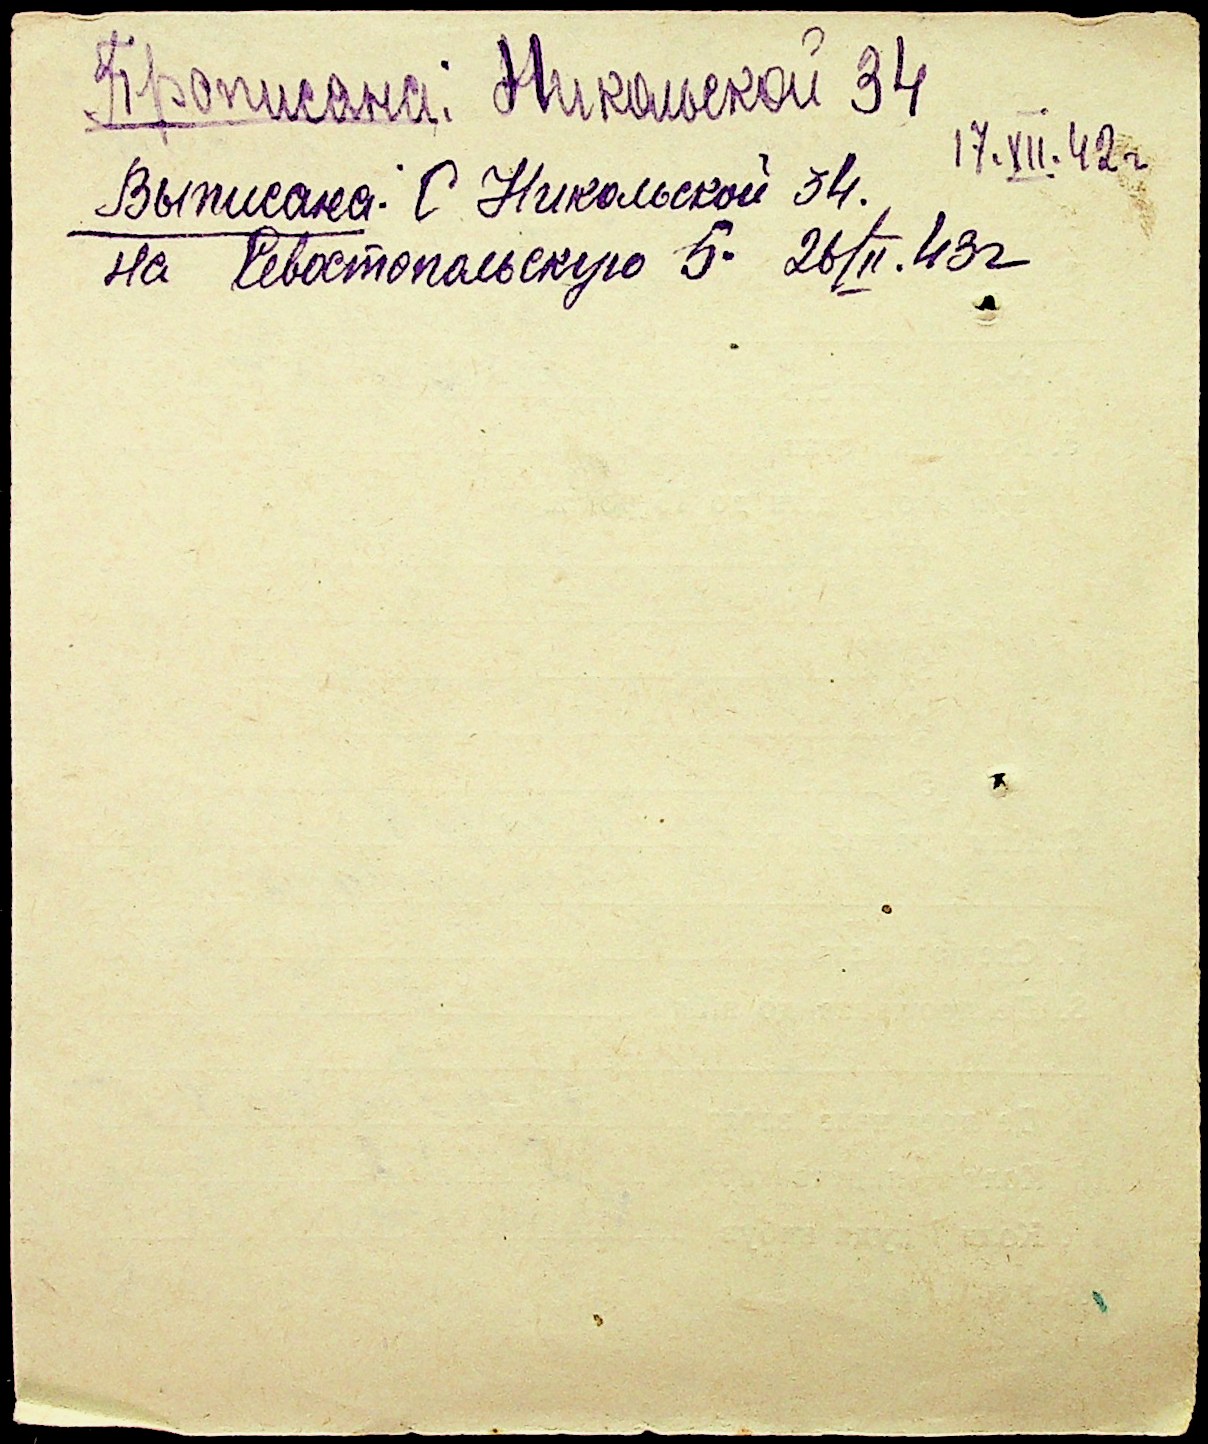 Прописана: Никольской 34
17.XII.42г
Выписана: С Никольской 34.
на Севостопольскую 5. 26/II.43г